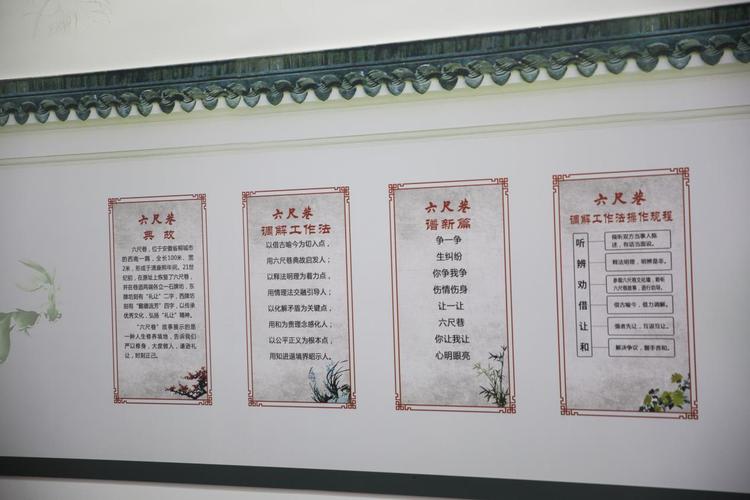 六尺巷
典故
六尺巷,位于安徽省桐城市
的西南一隅,全长100米、宽
2米,形成于清康熙年间。21世
纪初,在原址上恢复了六尺巷,
并在巷道两端各立一石牌坊,东
牌坊刻有“礼让”二字,西牌坊
刻有“懿德流芳”四字,以传承
优秀文化,弘扬“礼让”精神。
“六尺巷”故事展示的是
一种人生修养境地,告诉我们
严以修身,大度做人,谦逊礼
让,时刻正己。
六尺巷
调解工作法
以借古喻今为切入点,
用六尺巷典故启发人;
以释法明理为着力点,
用情理法交融引导人;
以化解矛盾为关键点,
用和为贵理念感化人;
以公平正义为根本点,
用知进退境界昭示人。
六尺巷
谱新篇
争一争
生纠纷
你争我争
伤情伤身
让一让
六尺巷
你让我让
心明眼亮
六尺巷
调解工作法操作规程
听
辨
劝
借
让
和
倾听双方当事人陈
述,有话当面说。
释法明理,明辨是非。
参观六尺巷文化墙,聆听
六尺巷故事,进行启导。
借古喻今,借力调解。
强者先让,互谅互让。
解决争议,握手言和。